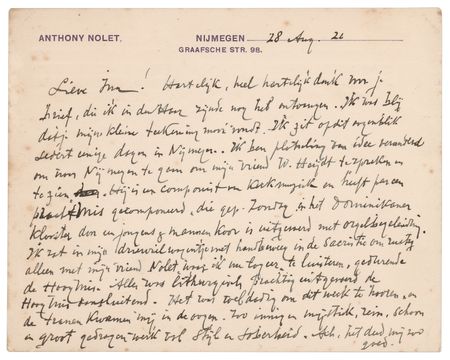 ANTHONY NOLET. NIJMEGEN 28 Aug. 21
GRAAFSCHE STR. 98.
Lieve Ina! Hartelijk, heel hartelijk dank voor je
brief, die ik in den Haag nog heb ontvangen. Ik was blij
dat je mijn kleine teekening mooi vondt. Ik zit op dit oogenblik
sedert eenige dagen in Nijmegen. Ik ben plotseling van idee veranderd
om naar Nijmegen te gaan om mijn vriend W. te spreken en
te zien. Hij is componist van Kerkmuziek en heeft pas een
gecomponeerd, die gep. Zondag in het Dominikaner
klooster door een jongens & mannenkoor is uitgevoerd met orgelbegeleiding.
Ik zat in mijn in de Sacristie om rustig
alleen met mijn vriend Nolet waar ik nu logeer te luisteren, gedurende
de Hoogmis. Alles was lithurgisch, prachtig uitgevoerd de
Hoogmis. Het was weldadig om dit werk te hooren, en
de tranen kwamen mij in de oogen. Zoo innig en mystiek, rein, schoon
en groot gedragen werk vol Stijl en Soberheid. Ach, het deed mij zoo
goed.